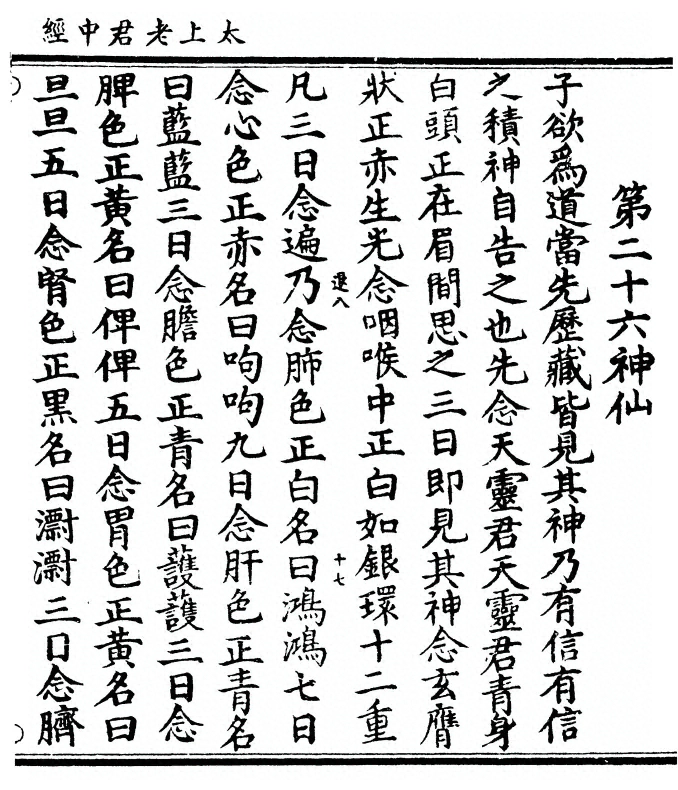 太上老君中經
第二十六神仙
子欲為道當先歷藏皆見其神乃有信有信
之積神自告之也先念天靈君天靈君青身
白頭正在眉間思之三日即見其神念玄膺
狀正赤生光念咽喉中正白如銀環十二重
還八
十七
凡三日念遍乃念肺色正白名曰鴻鴻七日
念心色正赤名曰呴呴九日念肝色正青名
曰藍藍三日念膽色正青名曰護護三日念
脾色正黃名曰俾俾五日念胃色正黃名曰
旦旦五日念腎色正黑名曰㶟㶟三口念臍